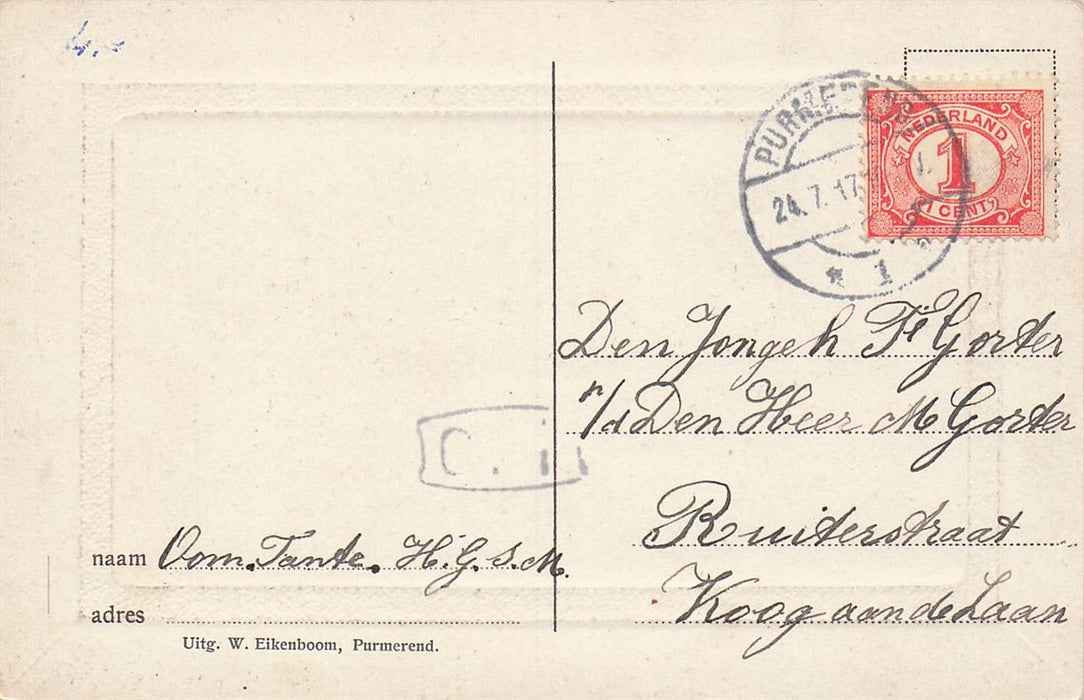 PURMEREND
24.7.17
1
NEDERLAND
1
1 CENT
Den Jongeh F Gorter
Den Heer M Gorter
Ruiterstraat
Koog aan de Laan
naam Oom. Tante. H. G. S. M.
adres
Uitg. W. Eikenboom, Purmerend.